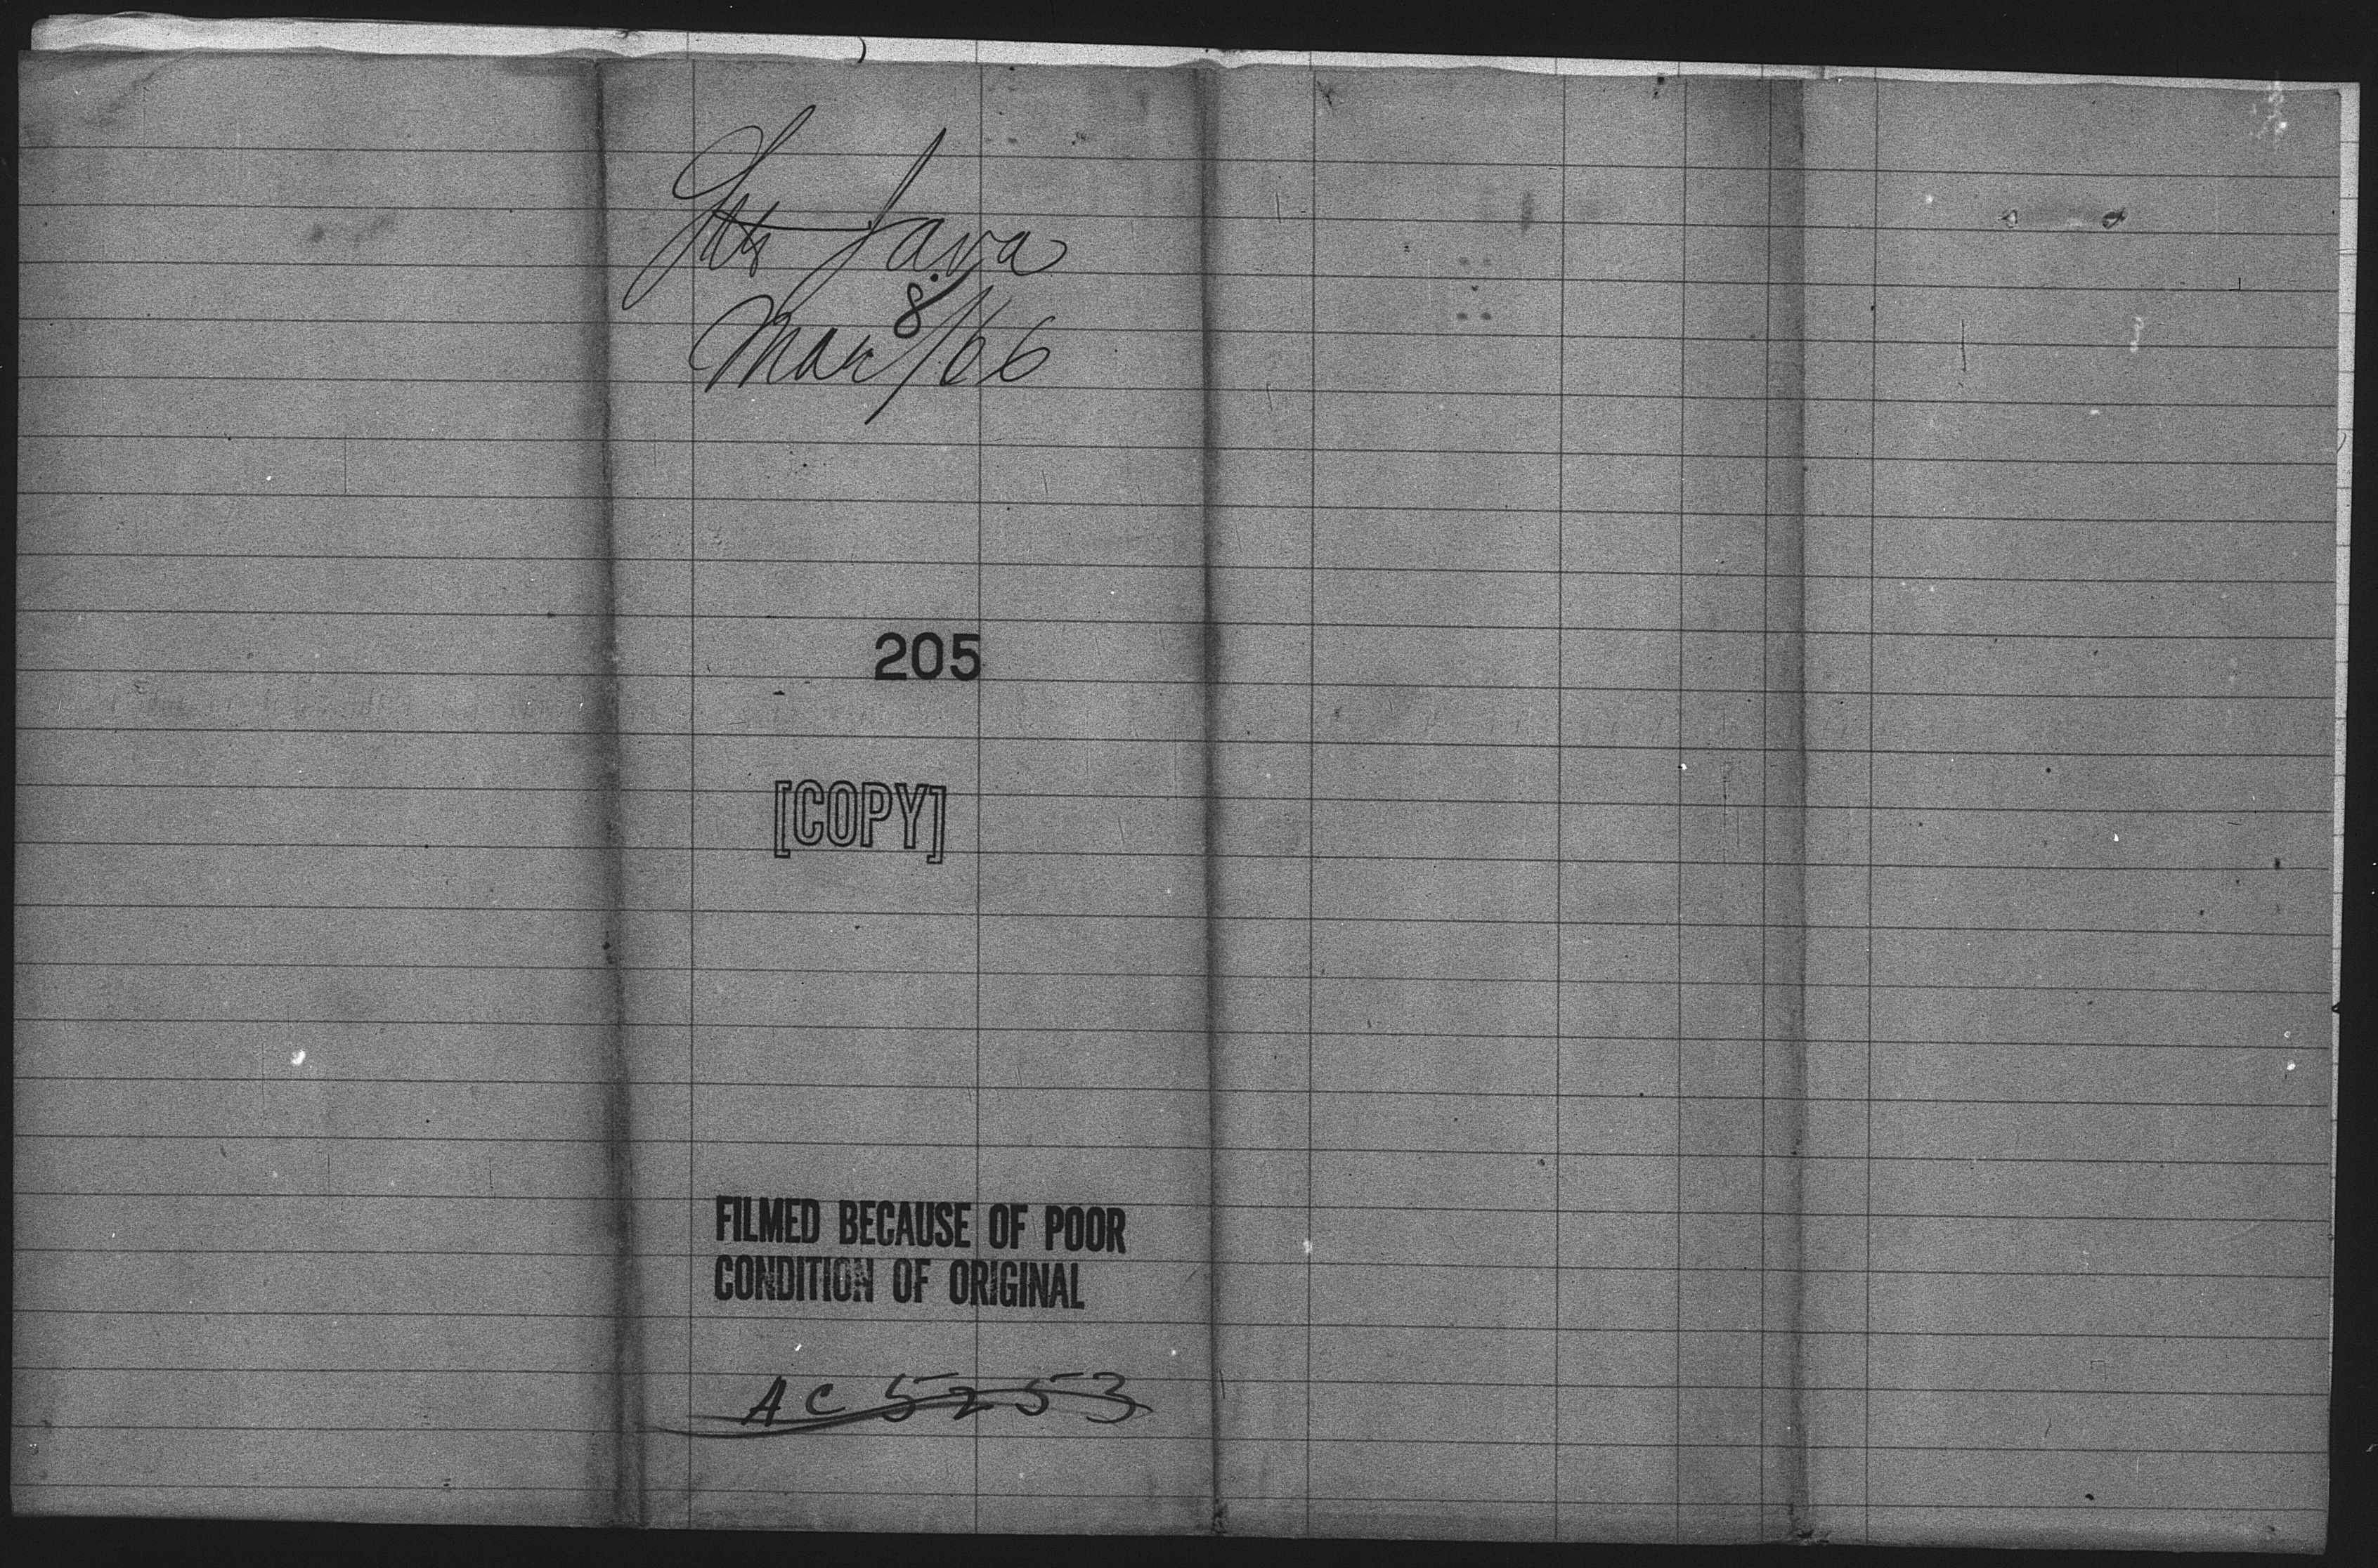 Java
Mar 8/66
205
[COPY]
FILMED BECAUSE OF POOR
CONDITION OF ORIGINAL
AC 5253